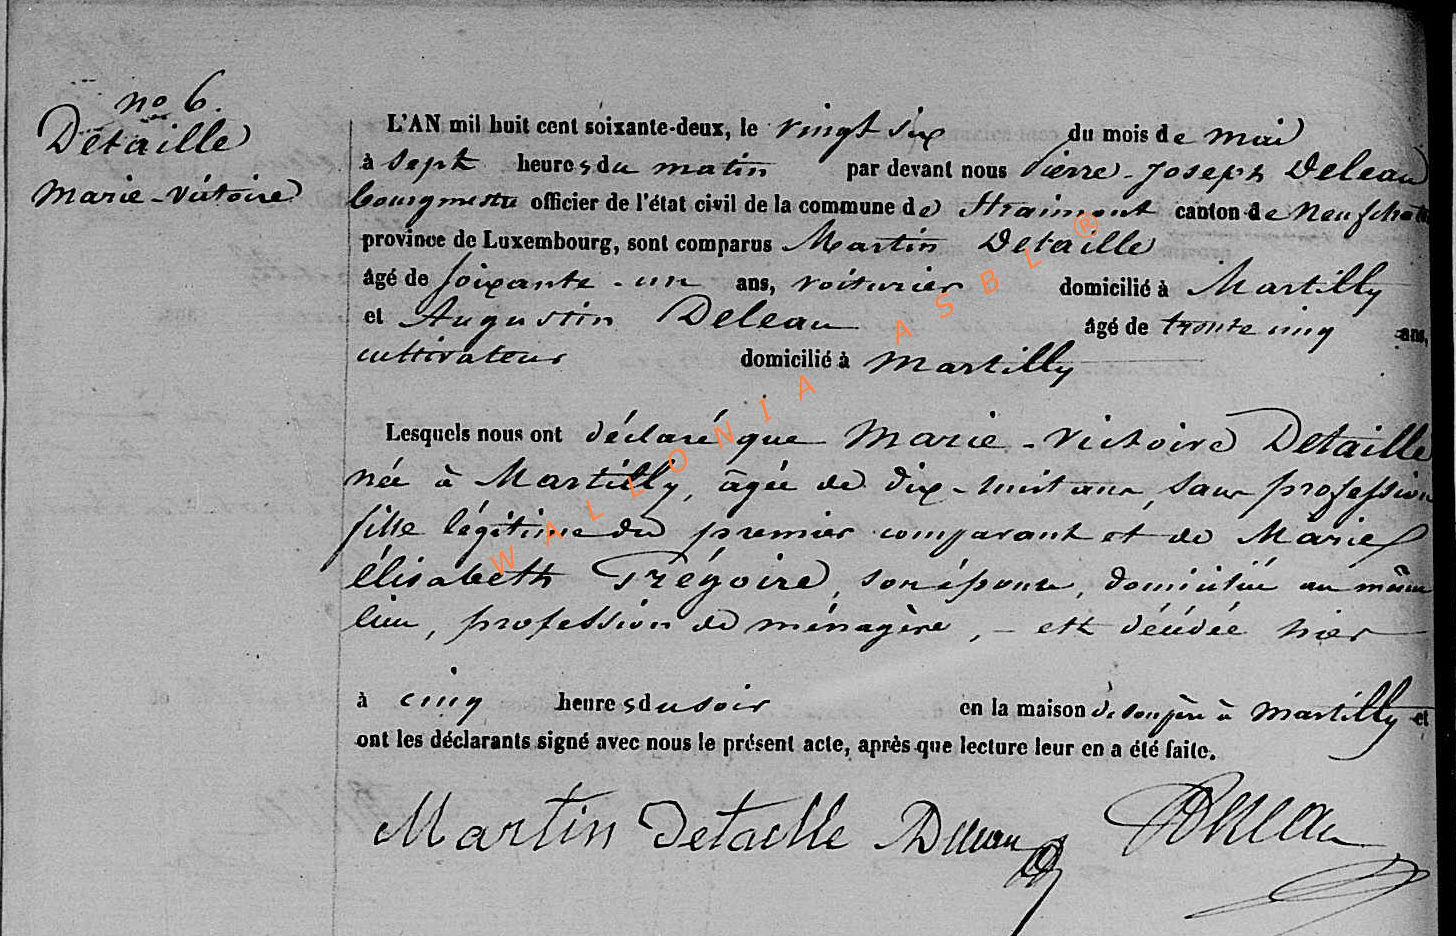 no 6.
Detaille
Marie-Victoire
L'AN mil huit cent soixante-deux, le vingt six du mois de mai
à sept heures du matin par devant nous Pierre-Joseph Deleau
bourgmestre officier de l'état civil de la commune de Straimont canton de Neufchatea
province de Luxembourg, sont comparus Martin Detaille
âgé de soixante-un ans, voiturier domicilié à Martilly
et Augustin Deleau âgé de trente cinq ans,
cultivateur domicilié à Martilly
Lesquels nous ont déclaré que Marie-Victoire Detaille
née à Martilly, âgée de dix-huit ans, sans profession
fille légitime du premier comparant et de Marie
élisabeth Grégoire, son épouse, domiciliée au même
lieu, profession de ménagère, – est décédée hier
à cinq heures du soir en la maison de son père à Martilly et
ont les déclarants signé avec nous le présent acte, après que lecture leur en a été faite.
Martin Detaille ADeleau Deleau
WALLONIA ASBL ®